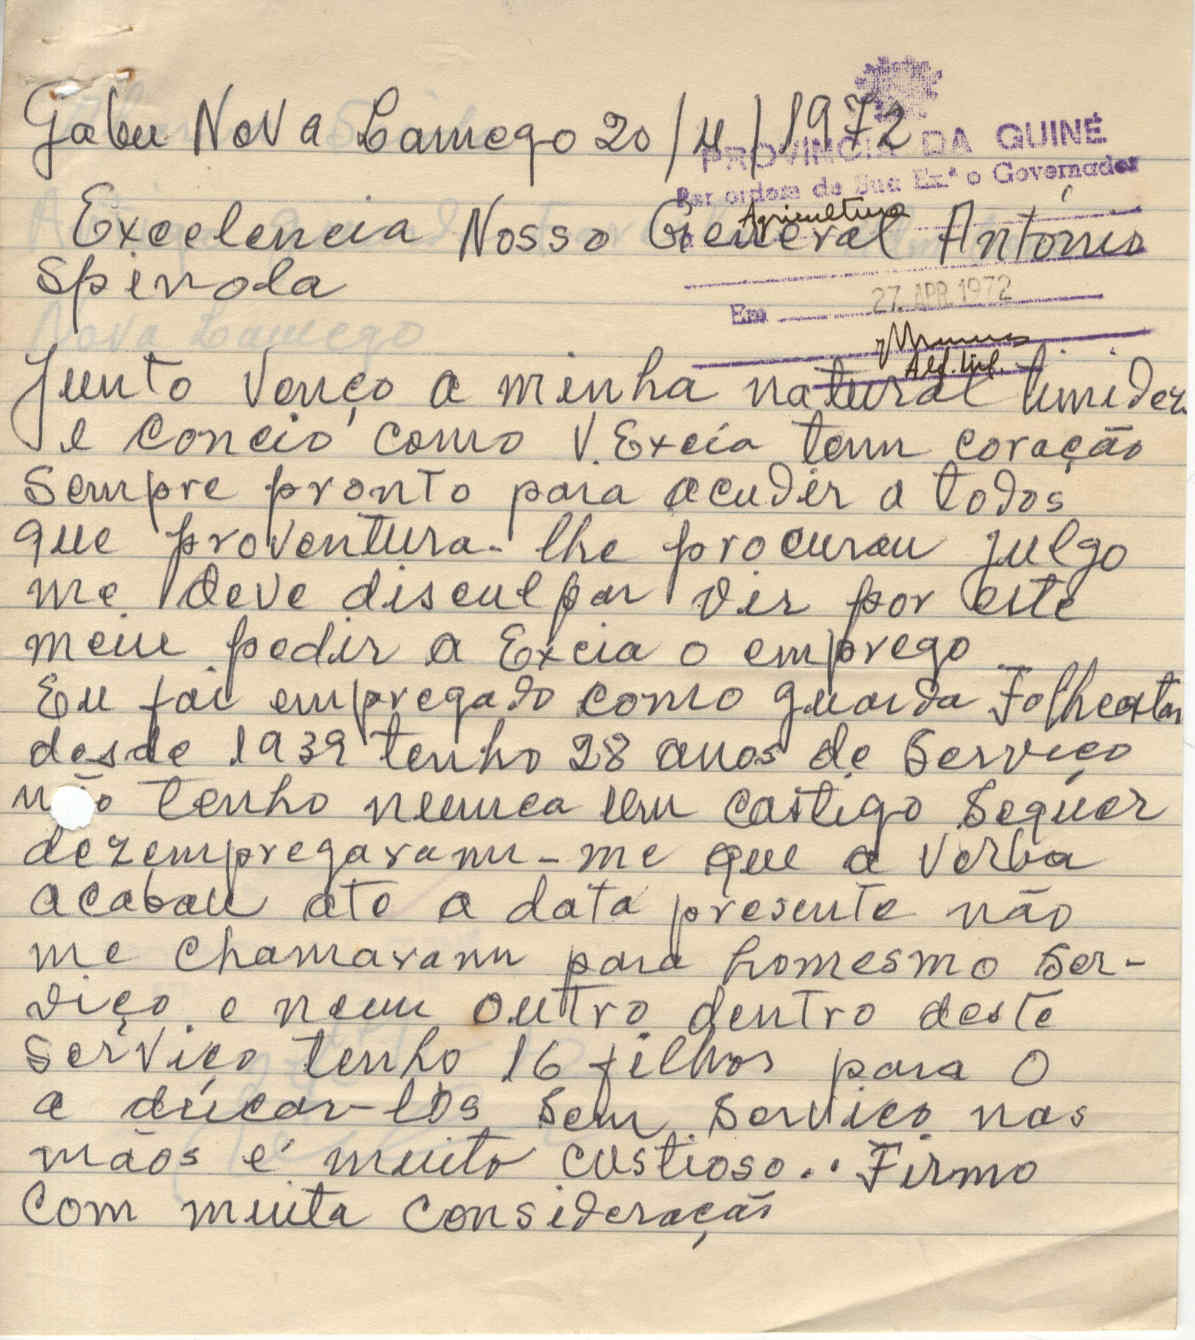 Gabu Nova Lamego 20/4/1972
PROVINCIA DA GUINÉ
Por ordem de Sua Exª o Governador
Agricultura
Excelencia Nosso General António
Spinola
Em 27. APR. 1972
Alf. Mil.
Nova Lamego
Junto Venço a minha natural timidez
e concio como V. Excia tem coração
Sempre pronto para acudir a todos
que proventura-lhe procurou julgo
me deve disculpar vir por este
meiu pedir a Excia o emprego
Eu fui empregado como guarda
desde 1939 tenho 28 anos de Serviço
não tenho nunca um castigo Sequer
dezempregaram-me que a Verba
acabou ate a data presente não
me chamaram para homesmo Ser-
viço e nem outro dentro deste
Serviço tenho 16 filhos para o
a dúcar-los Sem Serviço nas
mãos é muito custioso.. Firmo
Com muita Consideração